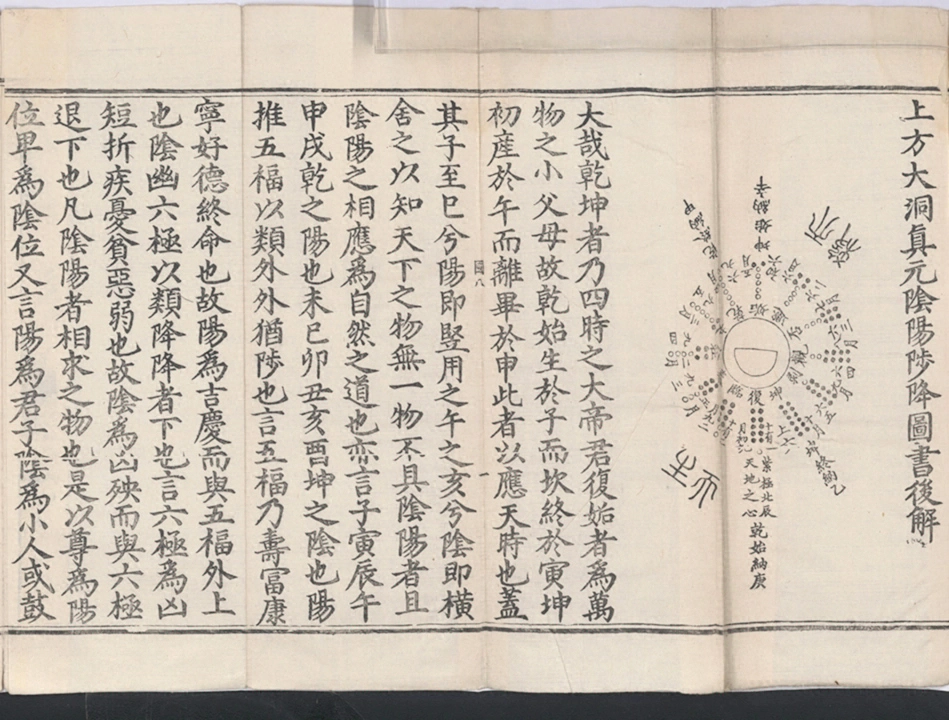 上方大洞真元陰陽陟降圖書後解
天地之心
乾始納庚
大哉乾坤者乃四時之大帝君復姤者爲萬
物之小父母故乾始生於子而坎終於寅坤
初産於午而離畢於申此者以應天時也蓋
其子至巳兮陽即竪用之午之亥兮陰即橫
舍之以知天下之物無一物不具陰陽者且
陰陽之相應爲自然之道也亦言子寅辰午
申戌乾之陽也未巳卯丑亥酉坤之陰也陽
推五福以類外外猶陟也言五福乃壽冨康
寧好德終命也故陽爲吉慶而與五福外上
也陰幽六極以類降降者下也言六極爲凶
短折疾憂貧惡弱也故陰爲凶殃而與六極
退下也凡陰陽者相求之物也是以尊爲陽
位卑爲陰位又言陽爲君子陰爲小人或鼓